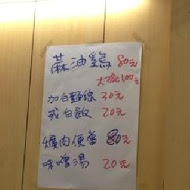 蔴油鷄 80元
大碗100元
加白麵線 20元
或白飯 20元
爌肉便當 80元
味噌湯 20元